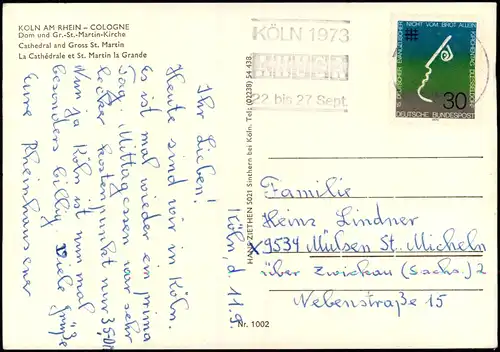 KÖLN AM RHEIN – COLOGNE
Dom und Gr.-St.-Martin-Kirche
Cathedral and Gross St. Martin
La Cathédrale et St. Martin la Grande
KÖLN 1973
22 bis 27 Sept.
15. DEUTSCHER EVANGELISCHER KIRCHENTAG DÜSSELDORF
NICHT VOM BROT ALLEIN
30
DEUTSCHE BUNDESPOST
HANS ZIETHEN 5021 Sinthern bei Köln. Tel. (02238) 54 438
Nr. 1002
Köln, d. 11.9.
Ihr Lieben!
Heute sind wir in Köln.
Es ist mal wieder ein prima
Tag. Mittagessen war sehr
lecker kostenpunkt nur 35,-DM
Nun ja Köln ist nun mal
besonders billig. Viele Grüße
Eure Rheinhausener
Familie
Heinz Lindner
X9534 Mülsen St. Micheln
über Zwickau (Sachs.) 2
Nebenstraße 15